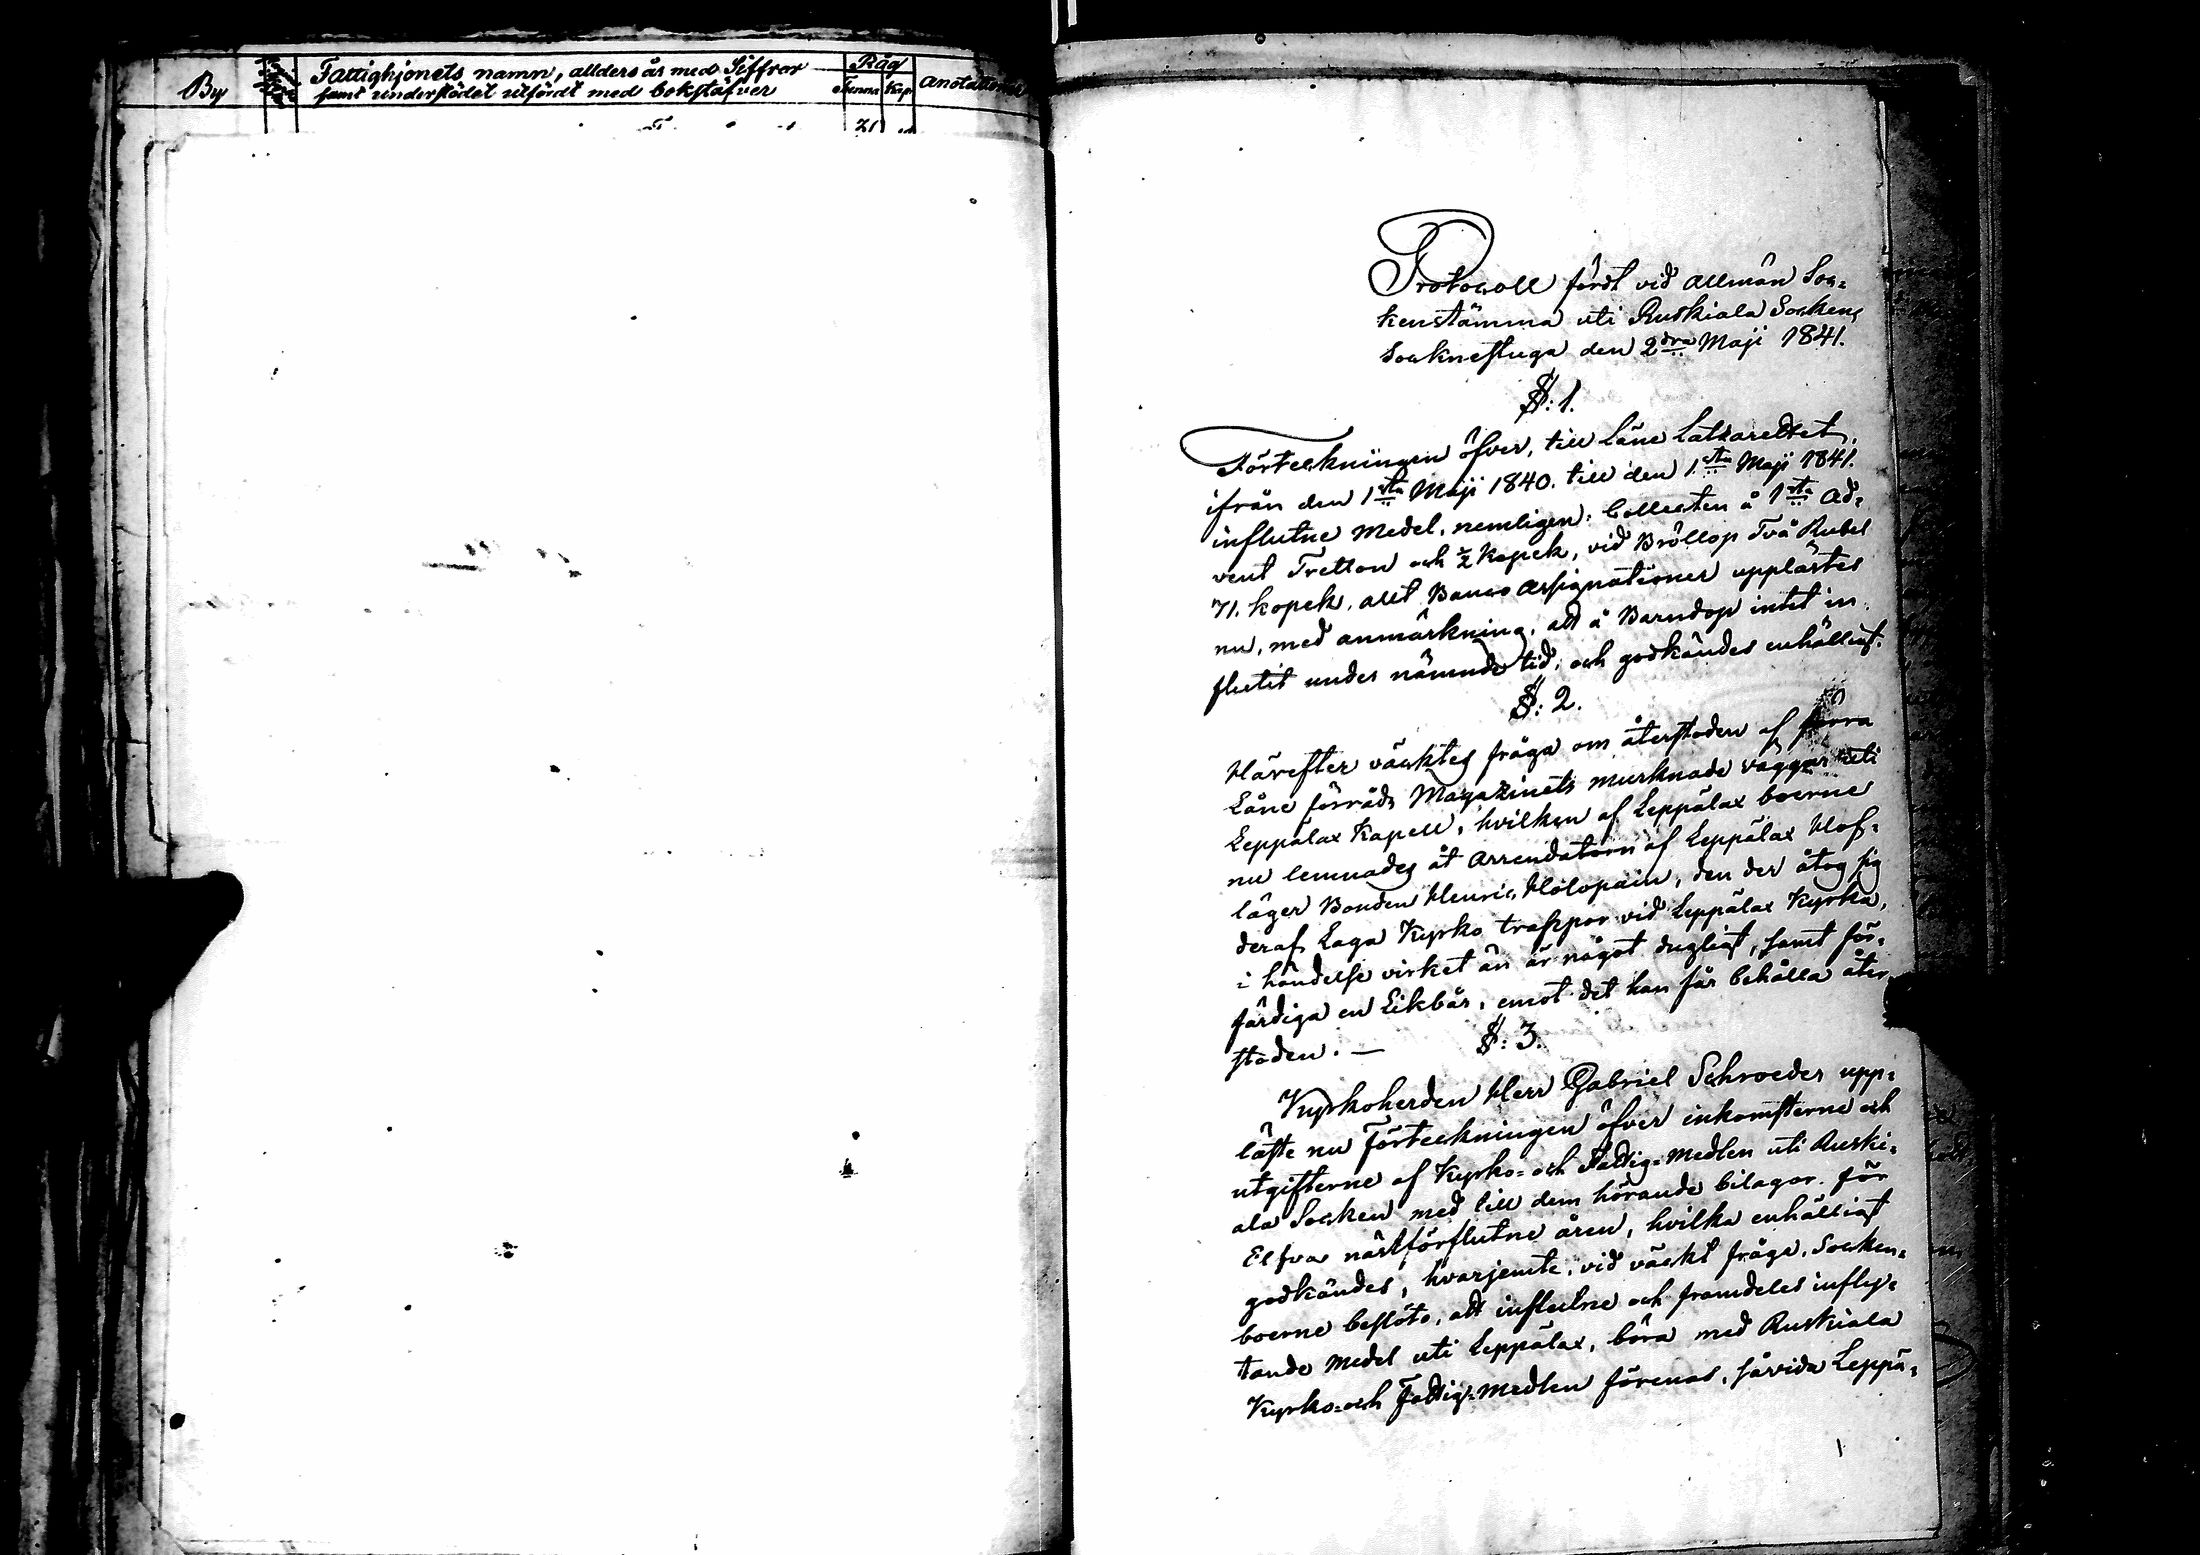 By
Fattighjonets namn, allders år med Siffror
samt understödet utfördt med bokstäfver
Råg
Tunna Kap
Anotationer
Protocoll fördt vid allmän Soc-
kenstämma uti Ruskiala Sockens
Socknestuga den 2dra Maji 1841.
§: 1.
Förteckningen öfver, till Läne Latzarettet,
ifrån den 1sta Maji 1840. till den 1sta Maji 1841.
influtne Medel, nemligen: Collecten å 1sta Ad-
vent Tretton och ½ kopek, vid Bröllop Två Rubel
71. kopek, allt Banco Assignationer upplästes
nu, med anmärkning, att å Barndop intet in-
flutit under nämnde tid, och godkändes enhälligt.
§: 2.
Härefter väcktes fråga om återstoden af förra
Låne förråds Magazinets murknade väggar uti
Leppälax Kapell, hvilken af Leppälax boerne
nu lemnades åt Arrendatorn af Leppälax Hof-
läger Bonden Henric Holopain, den der åtog sig
deraf Laga Kyrko trappor vid Leppälax Kyrka,
i händelse virket än är något dugligt, samt för-
färdiga en Likbår, emot det han får behålla åter-
stoden. —
§: 3.
Kyrkoherden Herr Gabriel Schroeder upp-
läste nu Förteckningen öfver inkomsterne och
utgifterne af Kyrko- och Fattig-Medlen uti Ruski-
ala Socken med till dem hörande bilagor för
Elfva nästförflutne åren, hvilka enhälligt
godkändes, hvarjemte, vid väckt fråga, Socken-
boerne beslöto, att influtne och framdeles infly-
tande Medel uti Leppälax, böra med Ruskiala
Kyrko- och Fattig-Medlen förenas, såvida Leppä-